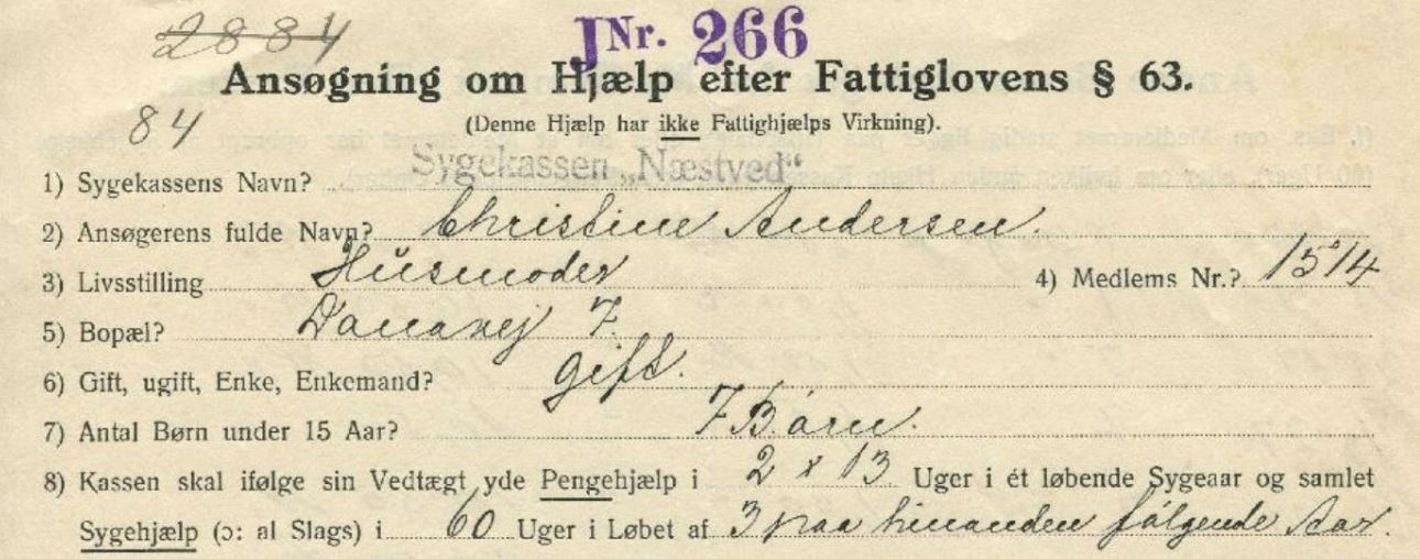 2884
JNr. 266
Ansøgning om Hjælp efter Fattiglovens § 63.
84
(Denne Hjælp har ikke Fattighjælps Virkning).
1) Sygekassens Navn? Sygekassen „Næstved“
2) Ansøgerens fulde Navn? Christine Andersen.
3) Livsstilling Husmoder 4) Medlems Nr.? 1514
5) Bopæl? Danavej 7.
6) Gift, ugift, Enke, Enkemand? gift.
7) Antal Børn under 15 Aar? 7 Børn.
8) Kassen skal ifølge sin Vedtægt yde Pengehjælp i 2 x 13 Uger i ét løbende Sygeaar og samlet
Sygehjælp (ɔ: al Slags) i 60 Uger i Løbet af 3 paa hinanden følgende Aar.